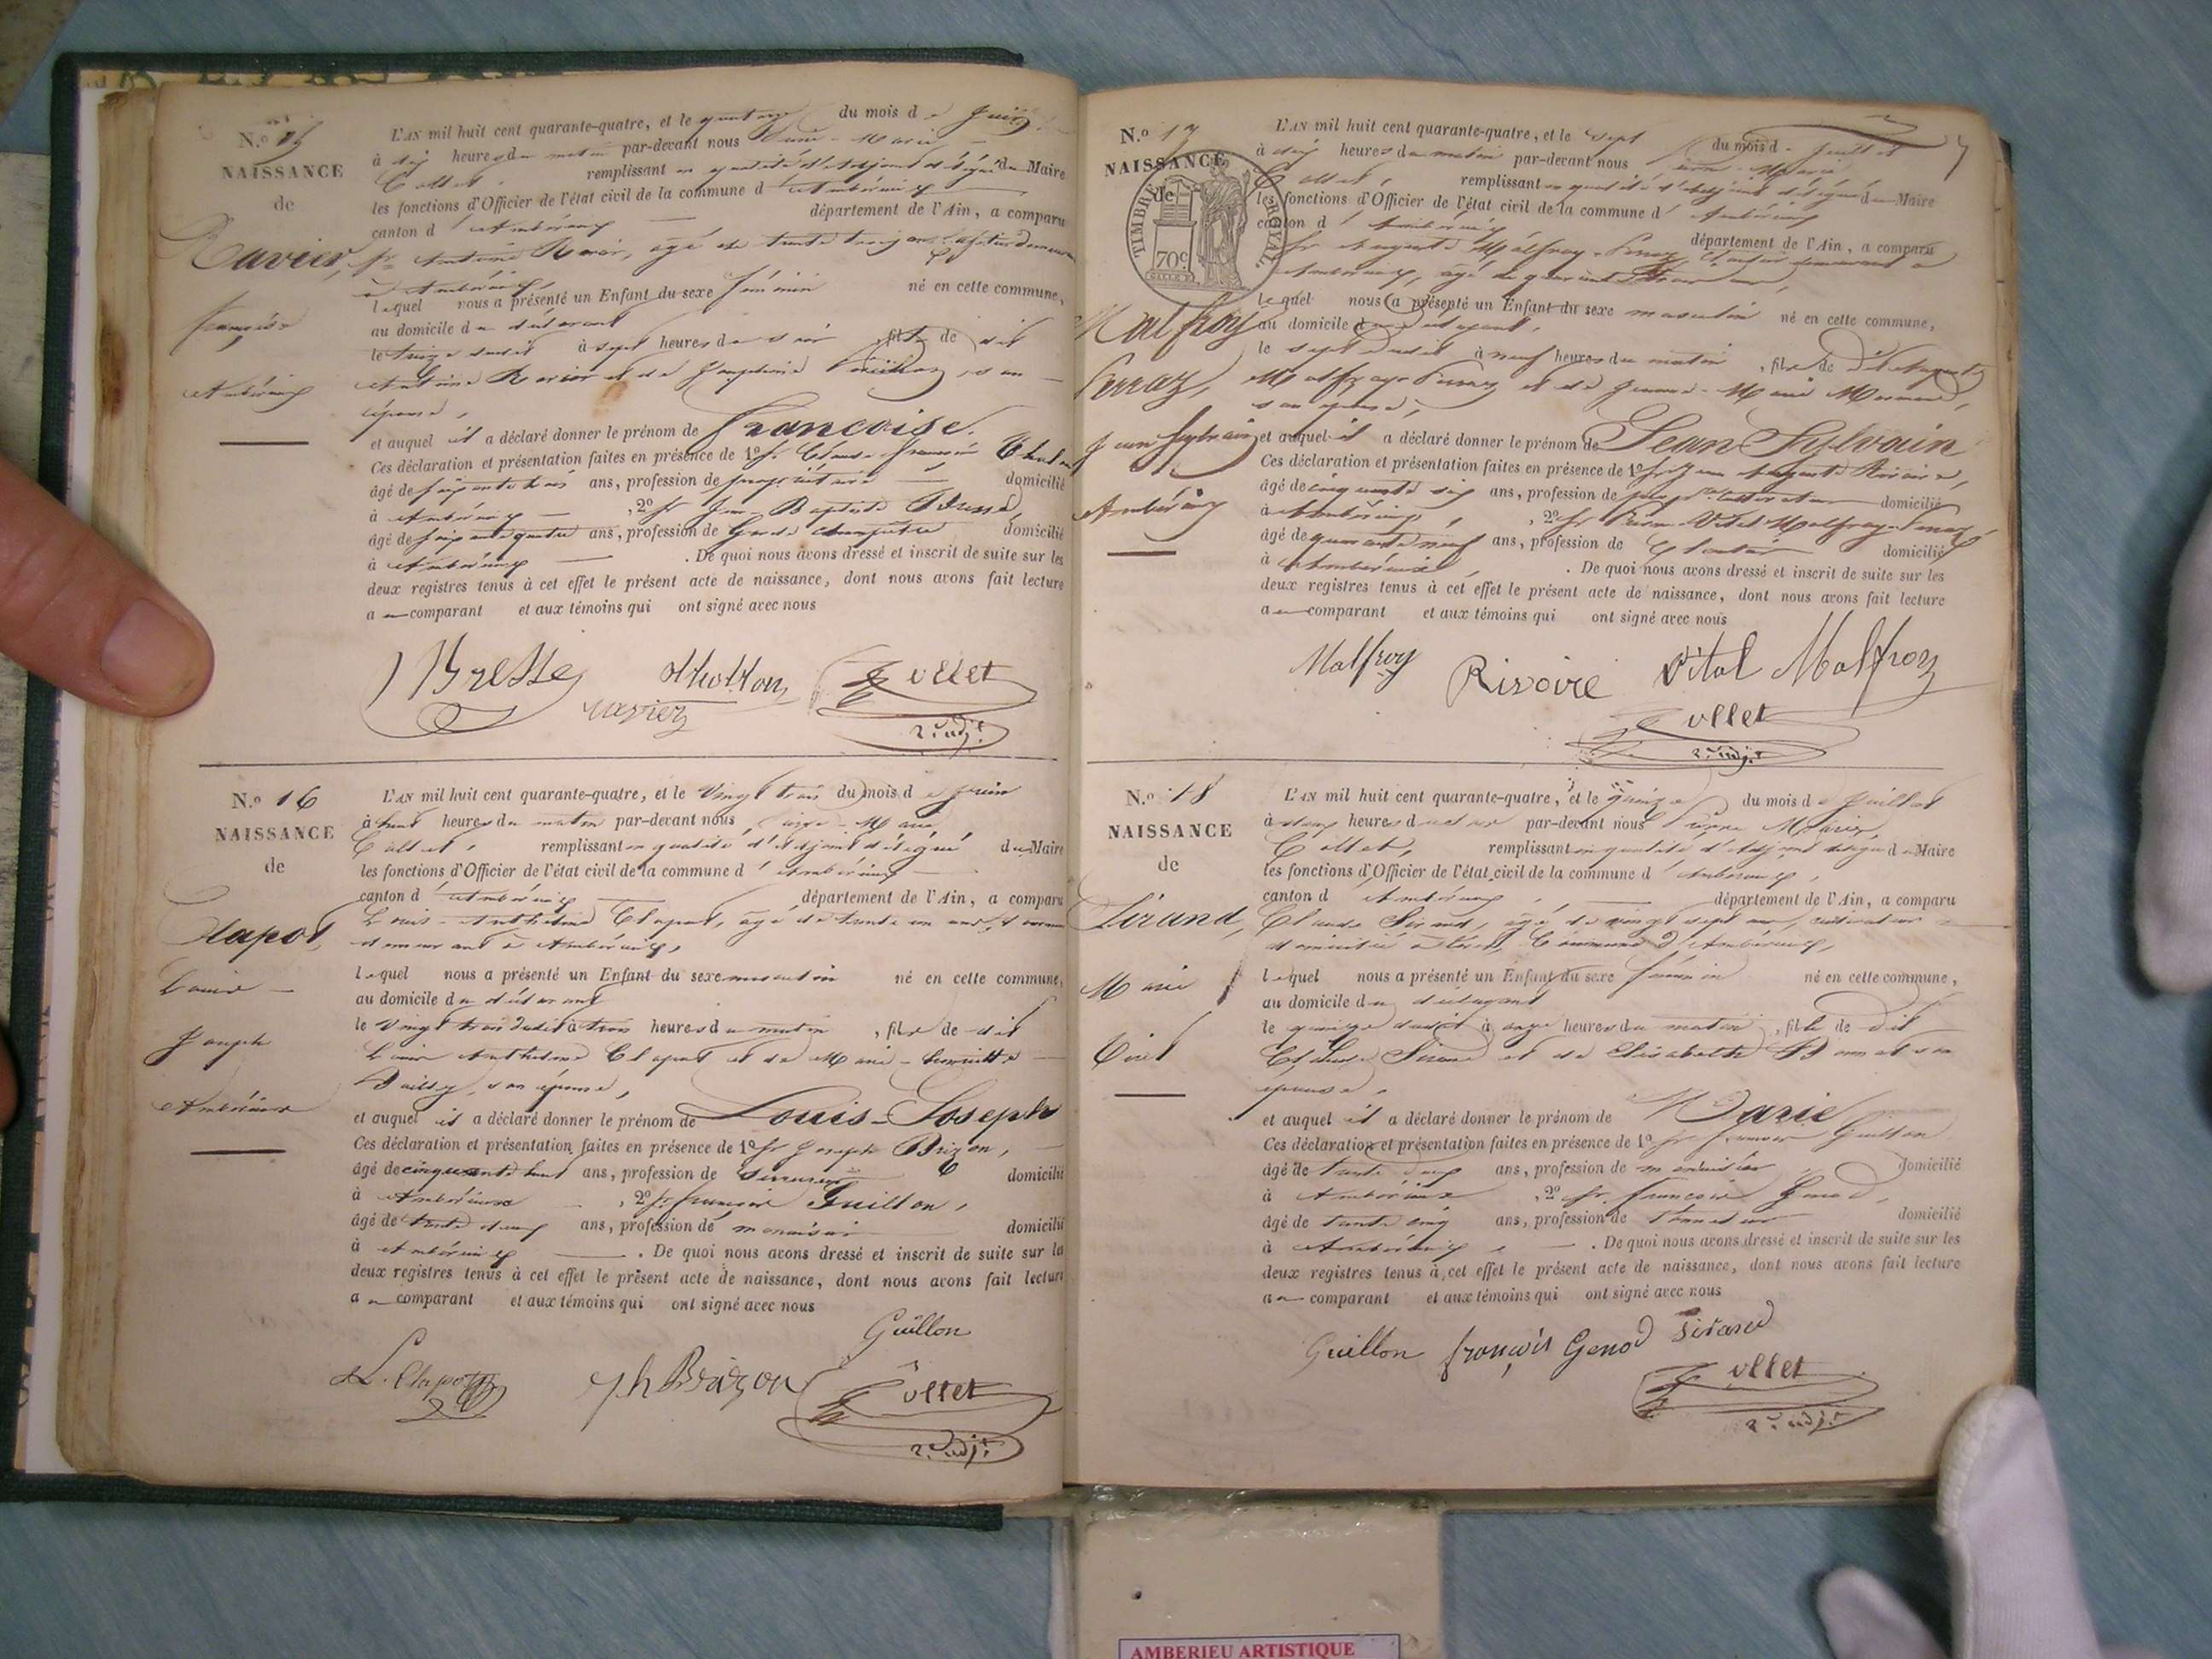 N.º 15
NAISSANCE
de
Ravier,
françoise
Ambérieux
L'AN mil huit cent quarante-quatre, et le quatorze du mois de Juin
à dix heures du matin par-devant nous Pierre-Marie
Collet, remplissant en qualité d'adjoint délégué du Maire
les fonctions d'Officier de l'état civil de la commune d'Ambérieux
canton d'Ambérieux département de l'Ain, a comparu
Sr Antoine Ravier, âgé de trente trois ans,
à Ambérieux,
lequel nous a présenté un Enfant du sexe féminin né en cette commune,
au domicile du déclarant
le treize dudit à sept heures du soir, fille de dit
Antoine Ravier et de Joséphine son
épouse,
et auquel il a déclaré donner le prénom de Françoise.
Ces déclaration et présentation faites en présence de 1º Sr Claude-françois
âgé de soixante trois ans, profession de propriétaire domicilié
à Ambérieux, 2º Sr Jean-Baptiste Bresse,
âgé de quatre ans, profession de Garde champêtre domicilié
à Ambérieux. De quoi nous avons dressé et inscrit de suite sur les
deux registres tenus à cet effet le présent acte de naissance, dont nous avons fait lecture
au comparant et aux témoins qui ont signé avec nous
JBresse Ravier Collet
2e adjt
N.º 16
NAISSANCE
de
Clapot,
Louis
Joseph
Ambérieux
L'AN mil huit cent quarante-quatre, et le Vingt trois du mois de Juin
à huit heures du matin par-devant nous Pierre-Marie
Collet, remplissant en qualité d'adjoint délégué du Maire
les fonctions d'Officier de l'état civil de la commune d'Ambérieux
canton d'Ambérieux département de l'Ain, a comparu
Louis-Anthelme Clapot, âgé de trente un ans,
demeurant à Ambérieux,
lequel nous a présenté un Enfant du sexe masculin né en cette commune,
au domicile du déclarant
le Vingt trois dudit à trois heures du matin, fils de dit
Louis Anthelme Clapot et de Marie-henriette
son épouse,
et auquel il a déclaré donner le prénom de Louis-Joseph
Ces déclaration et présentation faites en présence de 1º Sr Joseph Brizon,
âgé de cinquante huit ans, profession de serrurier domicilié
à Ambérieux, 2º Sr françois Guillon,
âgé de trente deux ans, profession de menuisier domicilié
à Ambérieux. De quoi nous avons dressé et inscrit de suite sur les
deux registres tenus à cet effet le présent acte de naissance, dont nous avons fait lecture
au comparant et aux témoins qui ont signé avec nous
Guillon
L. Clapot Jh Brizon Collet
2e adjt
N.º 17
NAISSANCE
de
TIMBRE ROYAL
70c
Malfroy
Perraz,
Jean Sylvain
Ambérieux
L'AN mil huit cent quarante-quatre, et le sept du mois de Juillet
à dix heures du matin par-devant nous Pierre-Marie
Collet, remplissant en qualité d'adjoint délégué du Maire
les fonctions d'Officier de l'état civil de la commune d'Ambérieux
canton d'Ambérieux département de l'Ain, a comparu
Sr Auguste Malfroy-Perraz, demeurant à
Ambérieux, âgé de quarante ans,
lequel nous a présenté un Enfant du sexe masculin né en cette commune,
au domicile du déclarant,
le sept dudit à neuf heures du matin, fils de dit Auguste
Malfroy-Perraz et de Jeanne-Marie
son épouse,
et auquel il a déclaré donner le prénom de Jean Sylvain
Ces déclaration et présentation faites en présence de 1º Sr Jean Auguste Rivoire,
âgé de cinquante six ans, profession de domicilié
à Ambérieux, 2º Sr Pierre-Vital Malfroy-Perraz
âgé de quarante neuf ans, profession de domicilié
à Ambérieux. De quoi nous avons dressé et inscrit de suite sur les
deux registres tenus à cet effet le présent acte de naissance, dont nous avons fait lecture
au comparant et aux témoins qui ont signé avec nous
Malfroy Rivoire Vital Malfroy
Collet
2e adjt
N.º 18
NAISSANCE
de
Sirand,
Marie
L'AN mil huit cent quarante-quatre, et le quinze du mois de Juillet
à heures du soir par-devant nous Pierre Marie
Collet, remplissant en qualité d'adjoint délégué du Maire
les fonctions d'Officier de l'état civil de la commune d'Ambérieux,
canton d'Ambérieux, département de l'Ain, a comparu
Claude Sirand, âgé de vingt sept ans, cultivateur
domicilié à Commune d'Ambérieux,
lequel nous a présenté un Enfant du sexe féminin né en cette commune,
au domicile du déclarant
le quinze dudit à onze heures du matin, fille de dit
Claude Sirand et de Elisabeth Bonnet son
épouse,
et auquel il a déclaré donner le prénom de Marie
Ces déclaration et présentation faites en présence de 1º Sr françois Guillon
âgé de trente deux ans, profession de menuisier domicilié
à Ambérieux, 2º Sr françois Genod,
âgé de trente cinq ans, profession de domicilié
à Ambérieux. De quoi nous avons dressé et inscrit de suite sur les
deux registres tenus à cet effet le présent acte de naissance, dont nous avons fait lecture
au comparant et aux témoins qui ont signé avec nous
Guillon françois Genod Sirand
Collet
2e adjt
AMBERIEU ARTISTIQUE